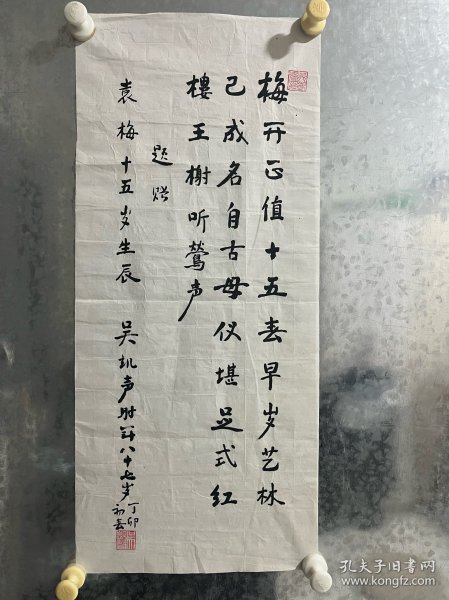 梅开正值十五春早岁艺林
已成名自古母仪堪足式红
楼王榭听莺声
题赠
袁梅十五岁生辰
吴凯声时年八十七岁丁卯
初春
孔夫子旧书网
www.kongfz.com